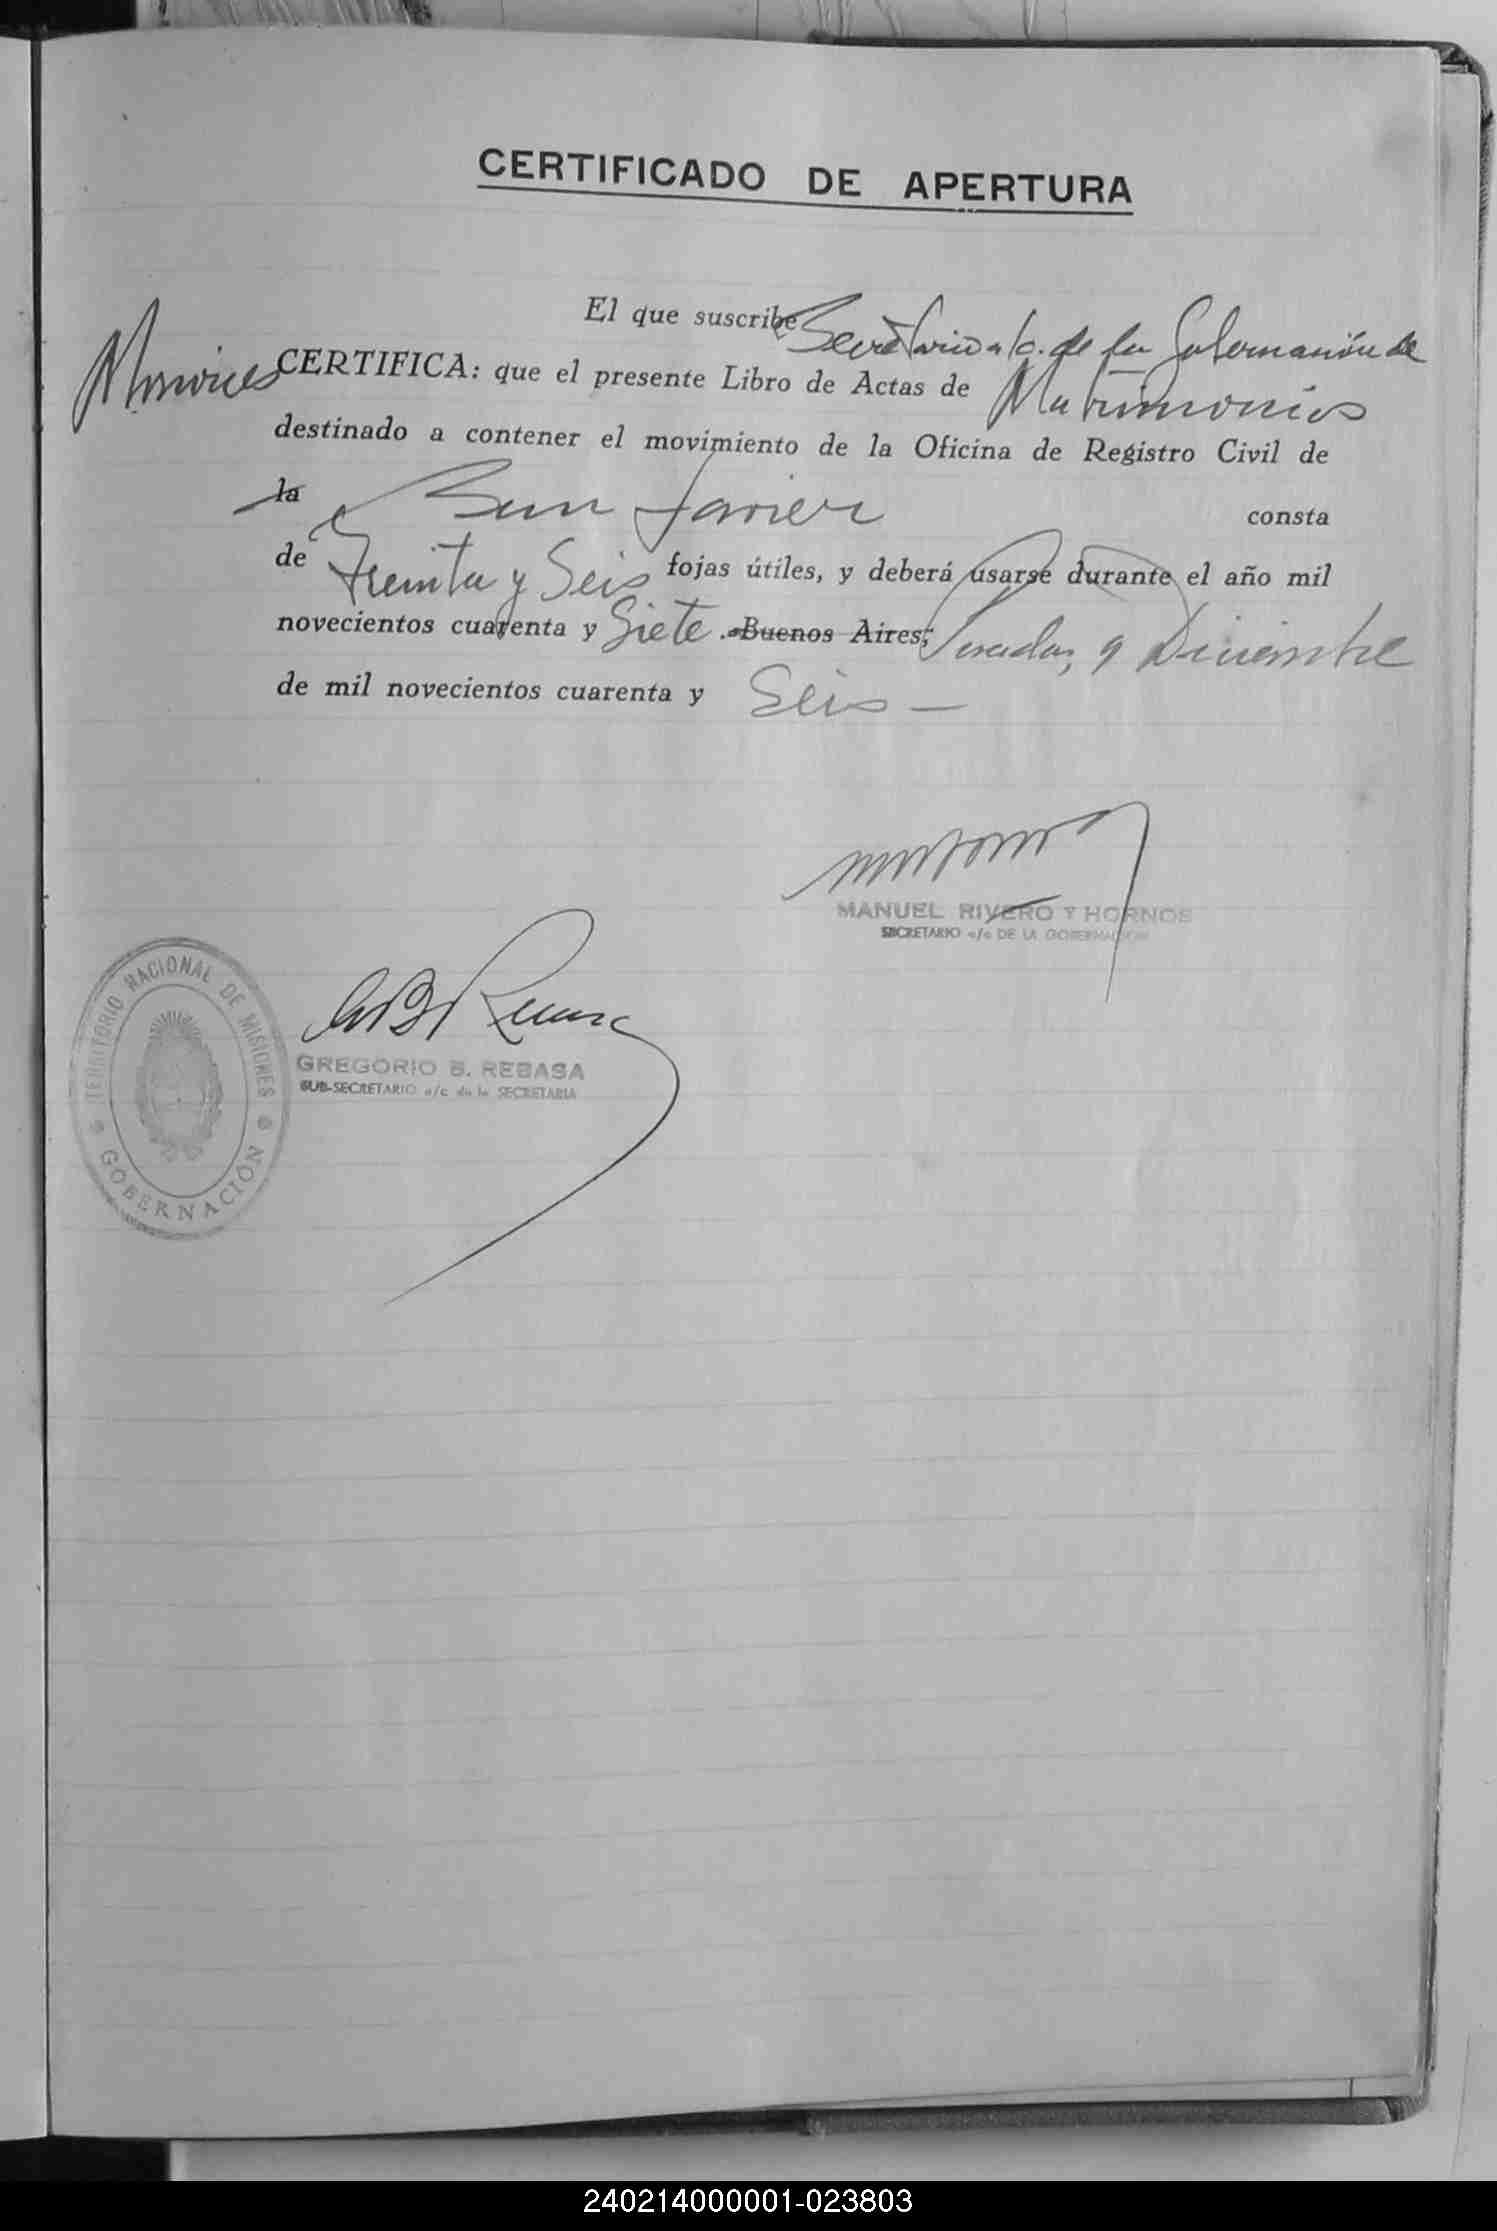 CERTIFICADO DE APERTURA
El que suscribe Secretario a/c. de la Gobernación de
Misiones CERTIFICA: que el presente Libro de Actas de Matrimonios
destinado a contener el movimiento de la Oficina de Registro Civil de
la San Javier consta
de Treinta y Seis fojas útiles, y deberá usarse durante el año mil
novecientos cuarenta y Siete. Buenos Aires, Posadas, 9 Diciembre
de mil novecientos cuarenta y Seis —
MANUEL RIVERO Y HORNOS
SECRETARIO a/c DE LA GOBERNACION
TERRITORIO NACIONAL DE MISIONES
GOBERNACIÓN
GREGORIO B. REBASA
SUB-SECRETARIO a/c de la SECRETARIA
240214000001-023803